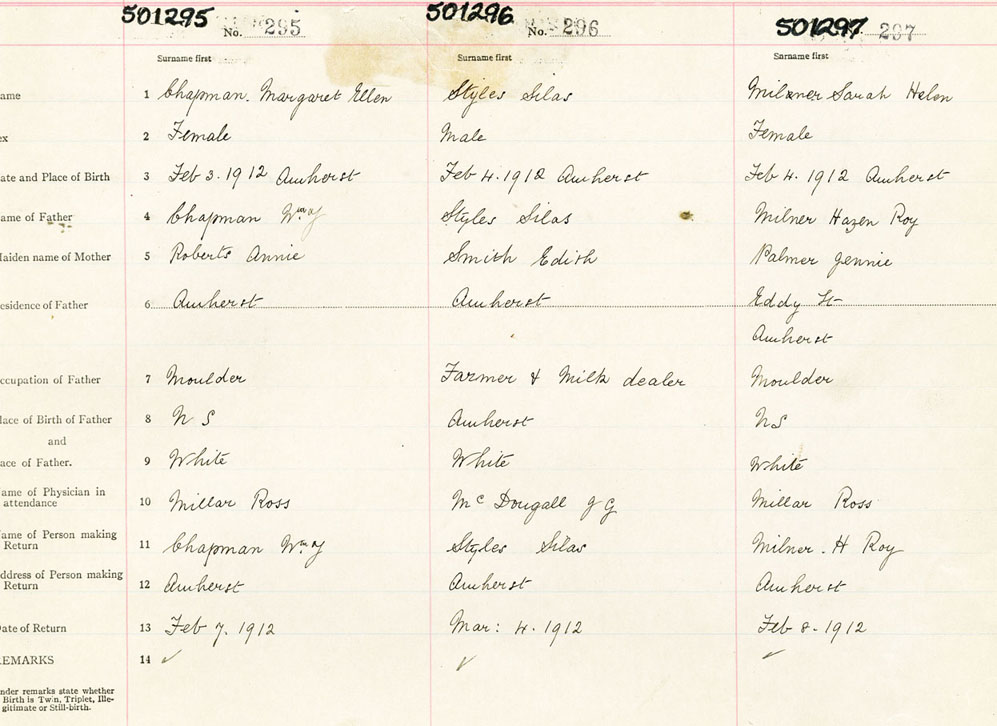 501295 501296 501297
No. 295 No. 296 297
Surname first Surname first Surname first
ame 1 Chapman. Margaret Ellen Styles Silas Milner Sarah Helen
ex 2 Female Male Female
ate and Place of Birth 3 Feb 3. 1912 Amherst Feb 4. 1912 Amherst Feb 4. 1912 Amherst
ame of Father 4 Chapman Wm J Styles Silas Milner Hazen Roy
aiden name of Mother 5 Roberts Annie Smith Edith Palmer Jennie
esidence of Father 6 Amherst Amherst Eddy St
Amherst
ccupation of Father 7 Moulder Farmer & Milk dealer Moulder
lace of Birth of Father 8 N S Amherst N S
and
ace of Father. 9 White White White
ame of Physician in
attendance 10 Millar Ross Mc Dougall J G Millar Ross
ame of Person making
Return 11 Chapman Wm J Styles Silas Milner. H Roy
ddress of Person making
Return 12 Amherst Amherst Amherst
ate of Return 13 Feb 7. 1912 Mar: 4. 1912 Feb 8. 1912
EMARKS 14 ✓ ✓ ✓
nder remarks state whether
Birth is Twin, Triplet, Ille-
gitimate or Still-birth.